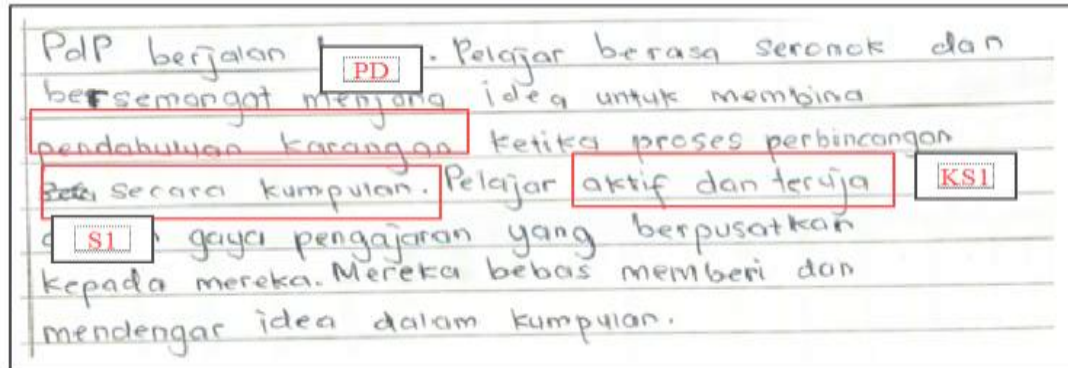 PdP berjalan PD . Pelajar berasa seronok dan
bersemangat menjana idea untuk membina
pendahuluan karangan ketika proses perbincangan
secara kumpulan. Pelajar aktif dan teruja KS1
S1 gaya pengajaran yang berpusatkan
kepada mereka. Mereka bebas memberi dan
mendengar idea dalam kumpulan.